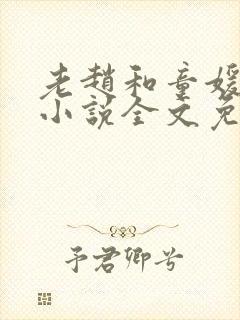 老趙和童媛
小說全文免
予君卿兮